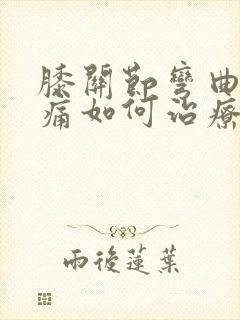 膝關節彎曲
痛如何治療
雨後蓮葉